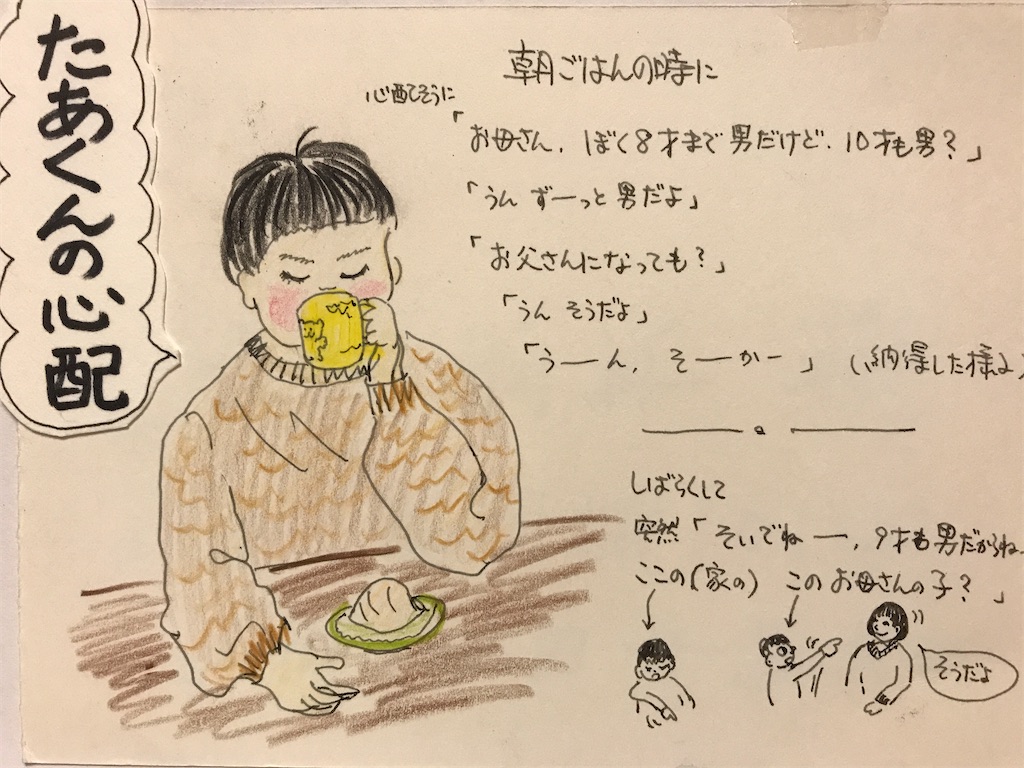 たあくんの心配
朝ごはんの時に
心配そうに
「お母さん、ぼく8才まで男だけど、10才も男?」
「うん ずーっと男だよ」
「お父さんになっても?」
「うん そうだよ」
「うーん、そーかー」(納得した様子
しばらくして
突然「そいでねー、9才も男だからね、
ここの(家の) このお母さんの子? 」
そうだよ